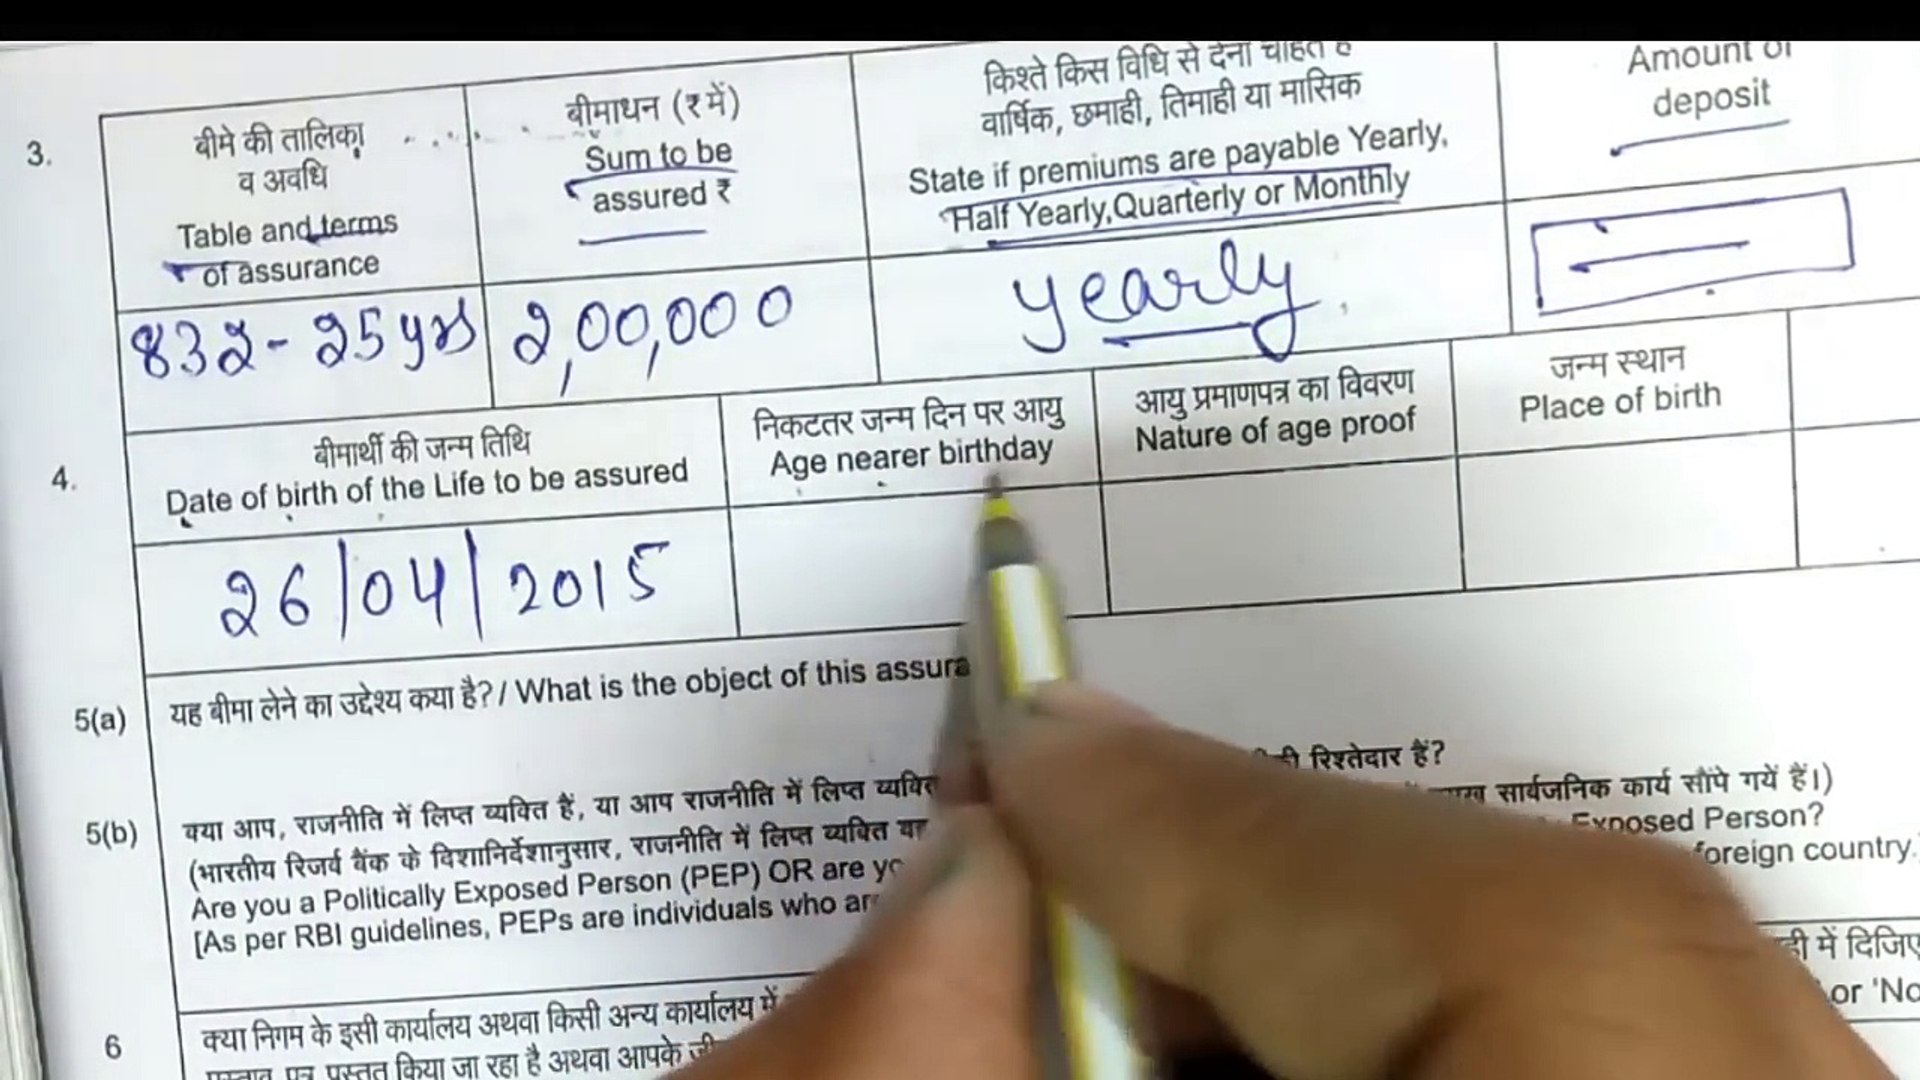 3.
बीमे की तालिका
व अवधि
Table and terms
of assurance
बीमाधन (₹ में)
Sum to be
assured ₹
किश्ते किस विधि से देना चाहते है
वार्षिक, छमाही, तिमाही या मासिक
State if premiums are payable Yearly,
Half Yearly,Quarterly or Monthly
Amount of
deposit
832- 25 yrs
2,00,000
yearly
4.
बीमार्थी की जन्म तिथि
Date of birth of the Life to be assured
निकटतर जन्म दिन पर आयु
Age nearer birthday
आयु प्रमाणपत्र का विवरण
Nature of age proof
जन्म स्थान
Place of birth
26/04/2015
5(a)
यह बीमा लेने का उद्देश्य कया है? / What is the object of this assura
5(b)
क्या आप, राजनीति में लिप्त व्यक्ति हैं, या आप राजनीति में लिप्त व्यक्ति की रिश्तेदार हैं?
(भारतीय रिजर्व बैंक के दिशानिर्देशानुसार, राजनीति में लिप्त व्यक्ति वह सार्वजनिक कार्य सौंपे गयें हैं।)
Are you a Politically Exposed Person (PEP) OR are yo Exposed Person?
[As per RBI guidelines, PEPs are individuals who are foreign country.
ही में दिजिए
or 'No
6
क्या निगम के इसी कार्यालय अथवा किसी अन्य कार्यालय में
प्रस्ताव पत्र प्रस्तुत किया जा रहा है अथवा आपके